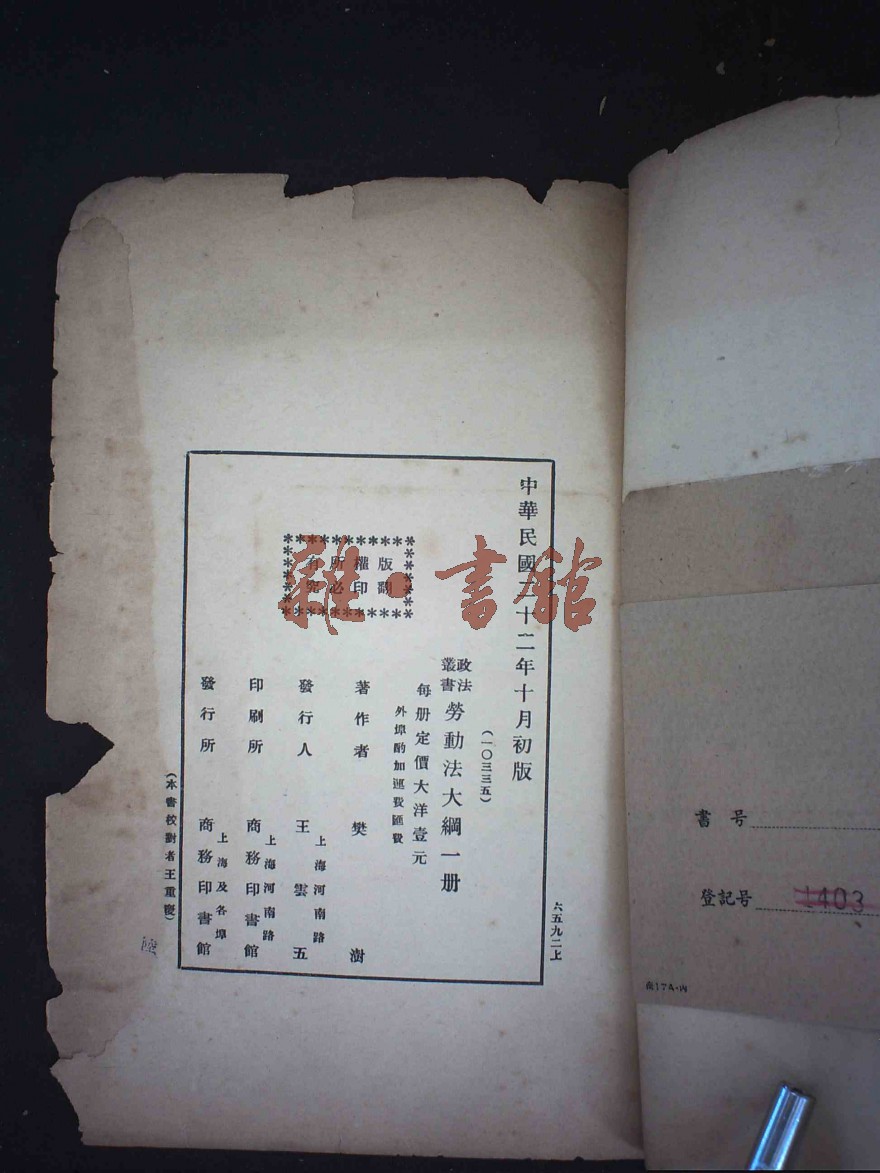 中華民國二十二年十月初版
(一〇三三五)
政法叢書
勞動法大綱一册
每册定價大洋壹元
外埠酌加運費匯費
版權所有
翻印必究
著作者 樊澍
發行人 王雲五
上海河南路
印刷所 商務印書館
上海河南路
發行所 商務印書館
上海及各埠
(本書校對者王重慶)
六五九二上
雜·書館
書号
登記号 1403